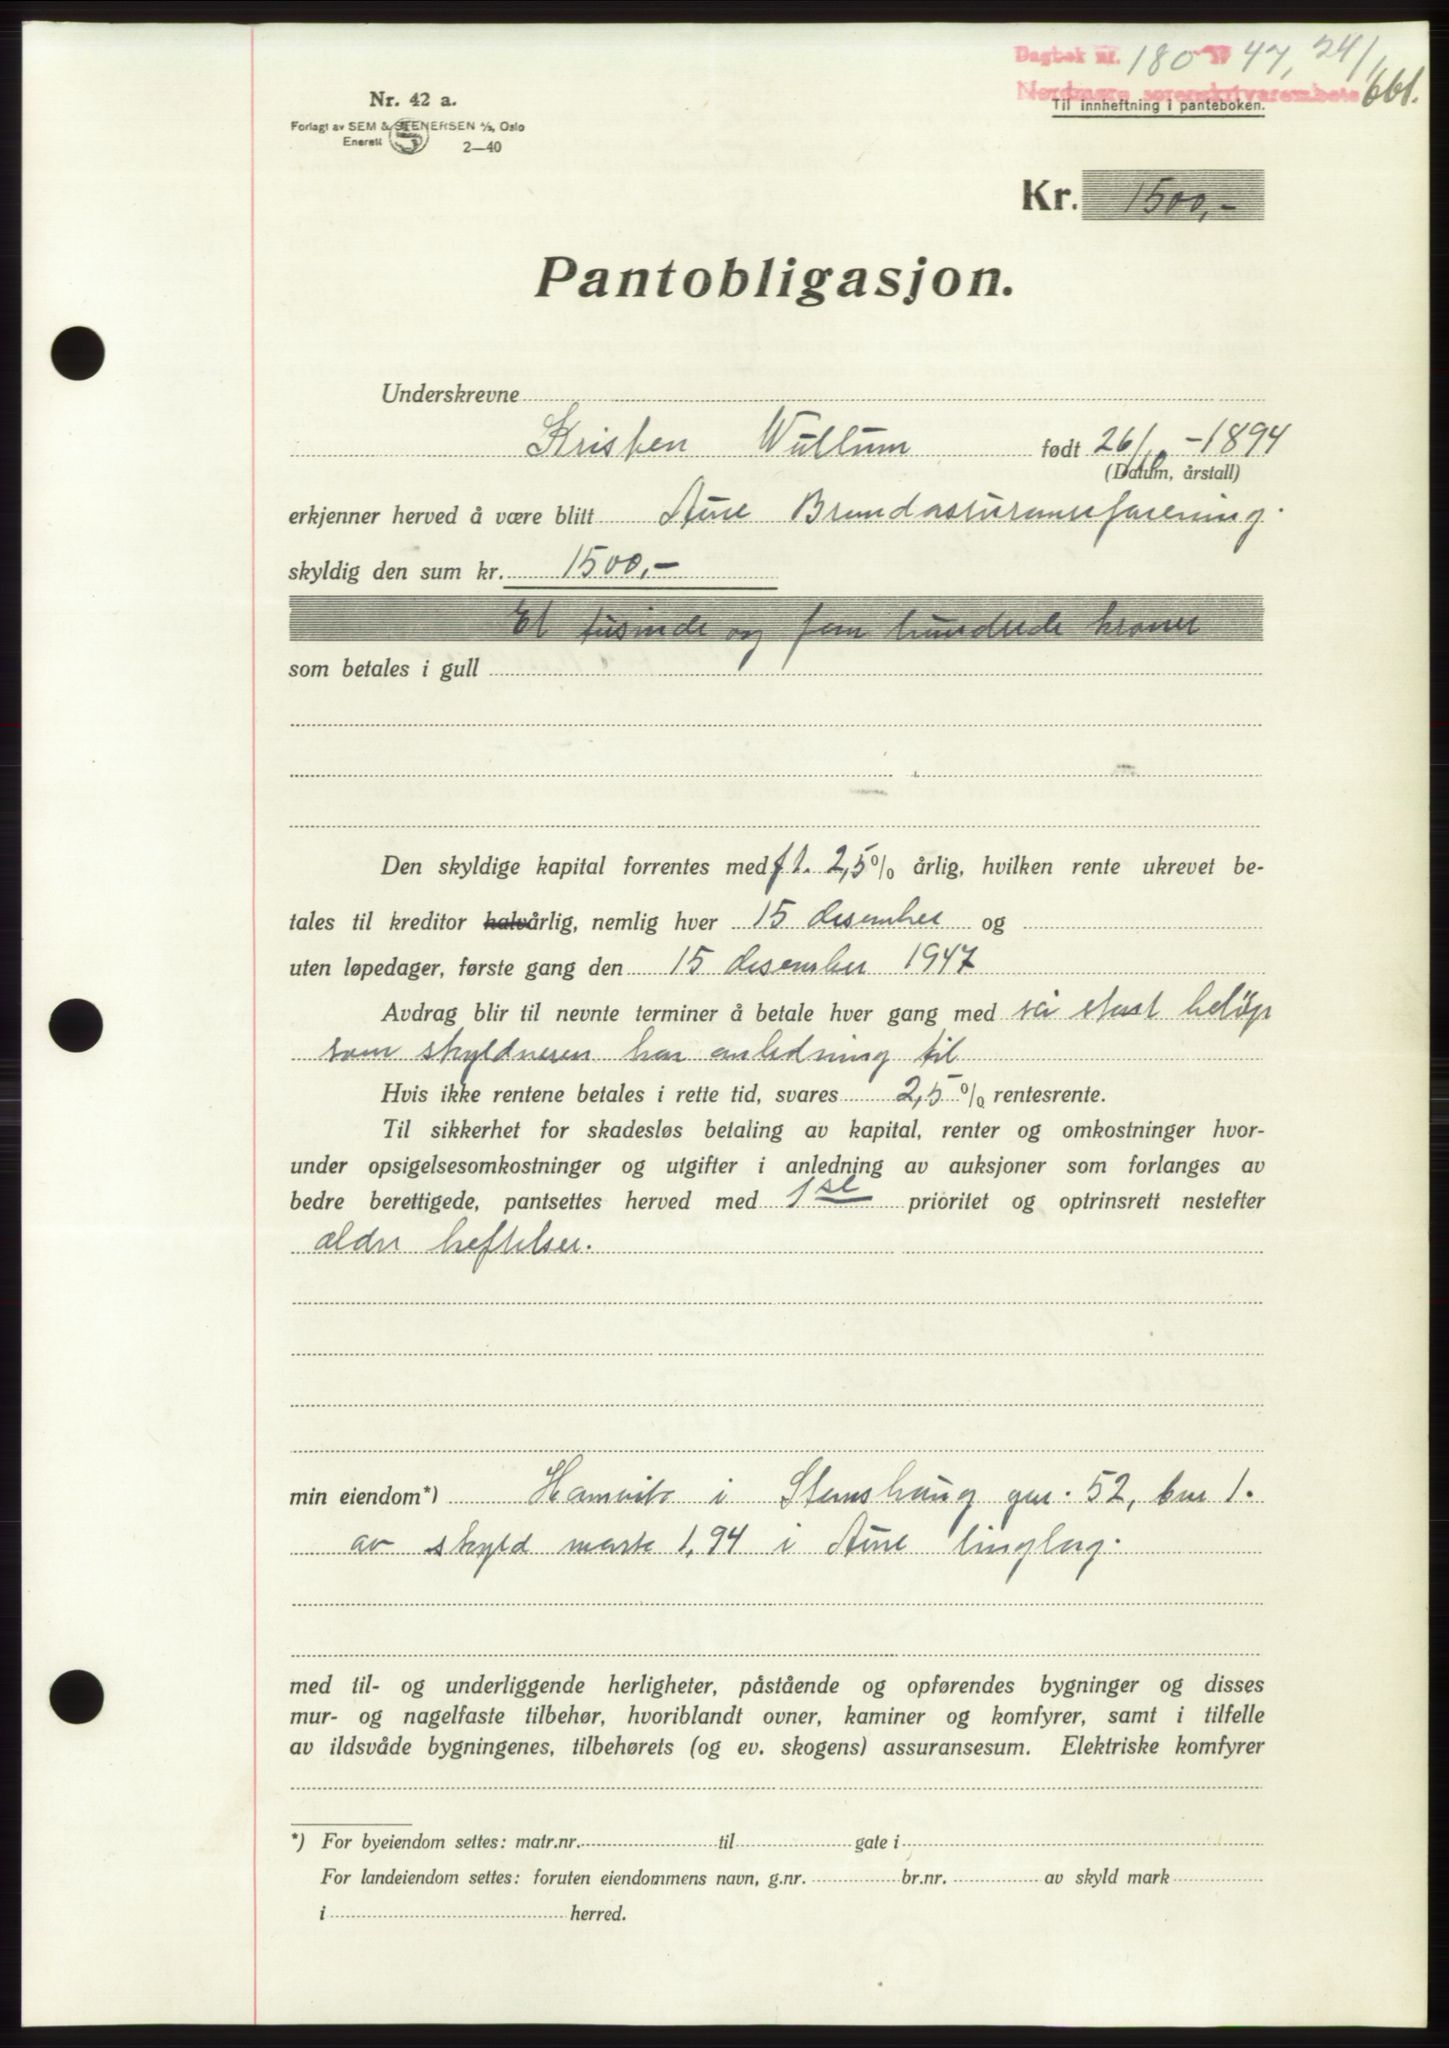 Dagbok nr. 180 19 47, 24/1
Nordmøre sorenskriverembete 661.
Til innheftning i panteboken.
Nr. 42 a.
Forlagt av SEM & STENERSEN A/S, Oslo
Enerett 2—40
Kr. 1500,-
Pantobligasjon.
Underskrevne
Kristen Wullum født 26/10 -1894
(Datum, årstall)
erkjenner herved å være blitt Aure Brandassuranseforening.
skyldig den sum kr. 1500,-
Et tusinde og fem hundrede kroner
som betales i gull
Den skyldige kapital forrentes med f.t. 2,5 % årlig, hvilken rente ukrevet be-
tales til kreditor halvårlig, nemlig hver 15 desember og
uten løpedager, første gang den 15 desember 1947
Avdrag blir til nevnte terminer å betale hver gang med så stort beløp
som skyldneren har anledning til
Hvis ikke rentene betales i rette tid, svares 2,5 % rentesrente.
Til sikkerhet for skadesløs betaling av kapital, renter og omkostninger hvor-
under opsigelsesomkostninger og utgifter i anledning av auksjoner som forlanges av
bedre berettigede, pantsettes herved med 1ste prioritet og optrinsrett nestefter
eldre heftelser.
min eiendom*) i Stemshaug gnr. 52, bnr 1.
av skyld mark 1,94 i Aure tinglag.
med til- og underliggende herligheter, påstående og opførendes bygninger og disses
mur- og nagelfaste tilbehør, hvoriblandt ovner, kaminer og komfyrer, samt i tilfelle
av ildsvåde bygningenes, tilbehørets (og ev. skogens) assuransesum. Elektriske komfyrer
*) For byeiendom settes: matr.nr. til gate i
For landeiendom settes: foruten eiendommens navn, g.nr. br.nr. av skyld mark
i herred.